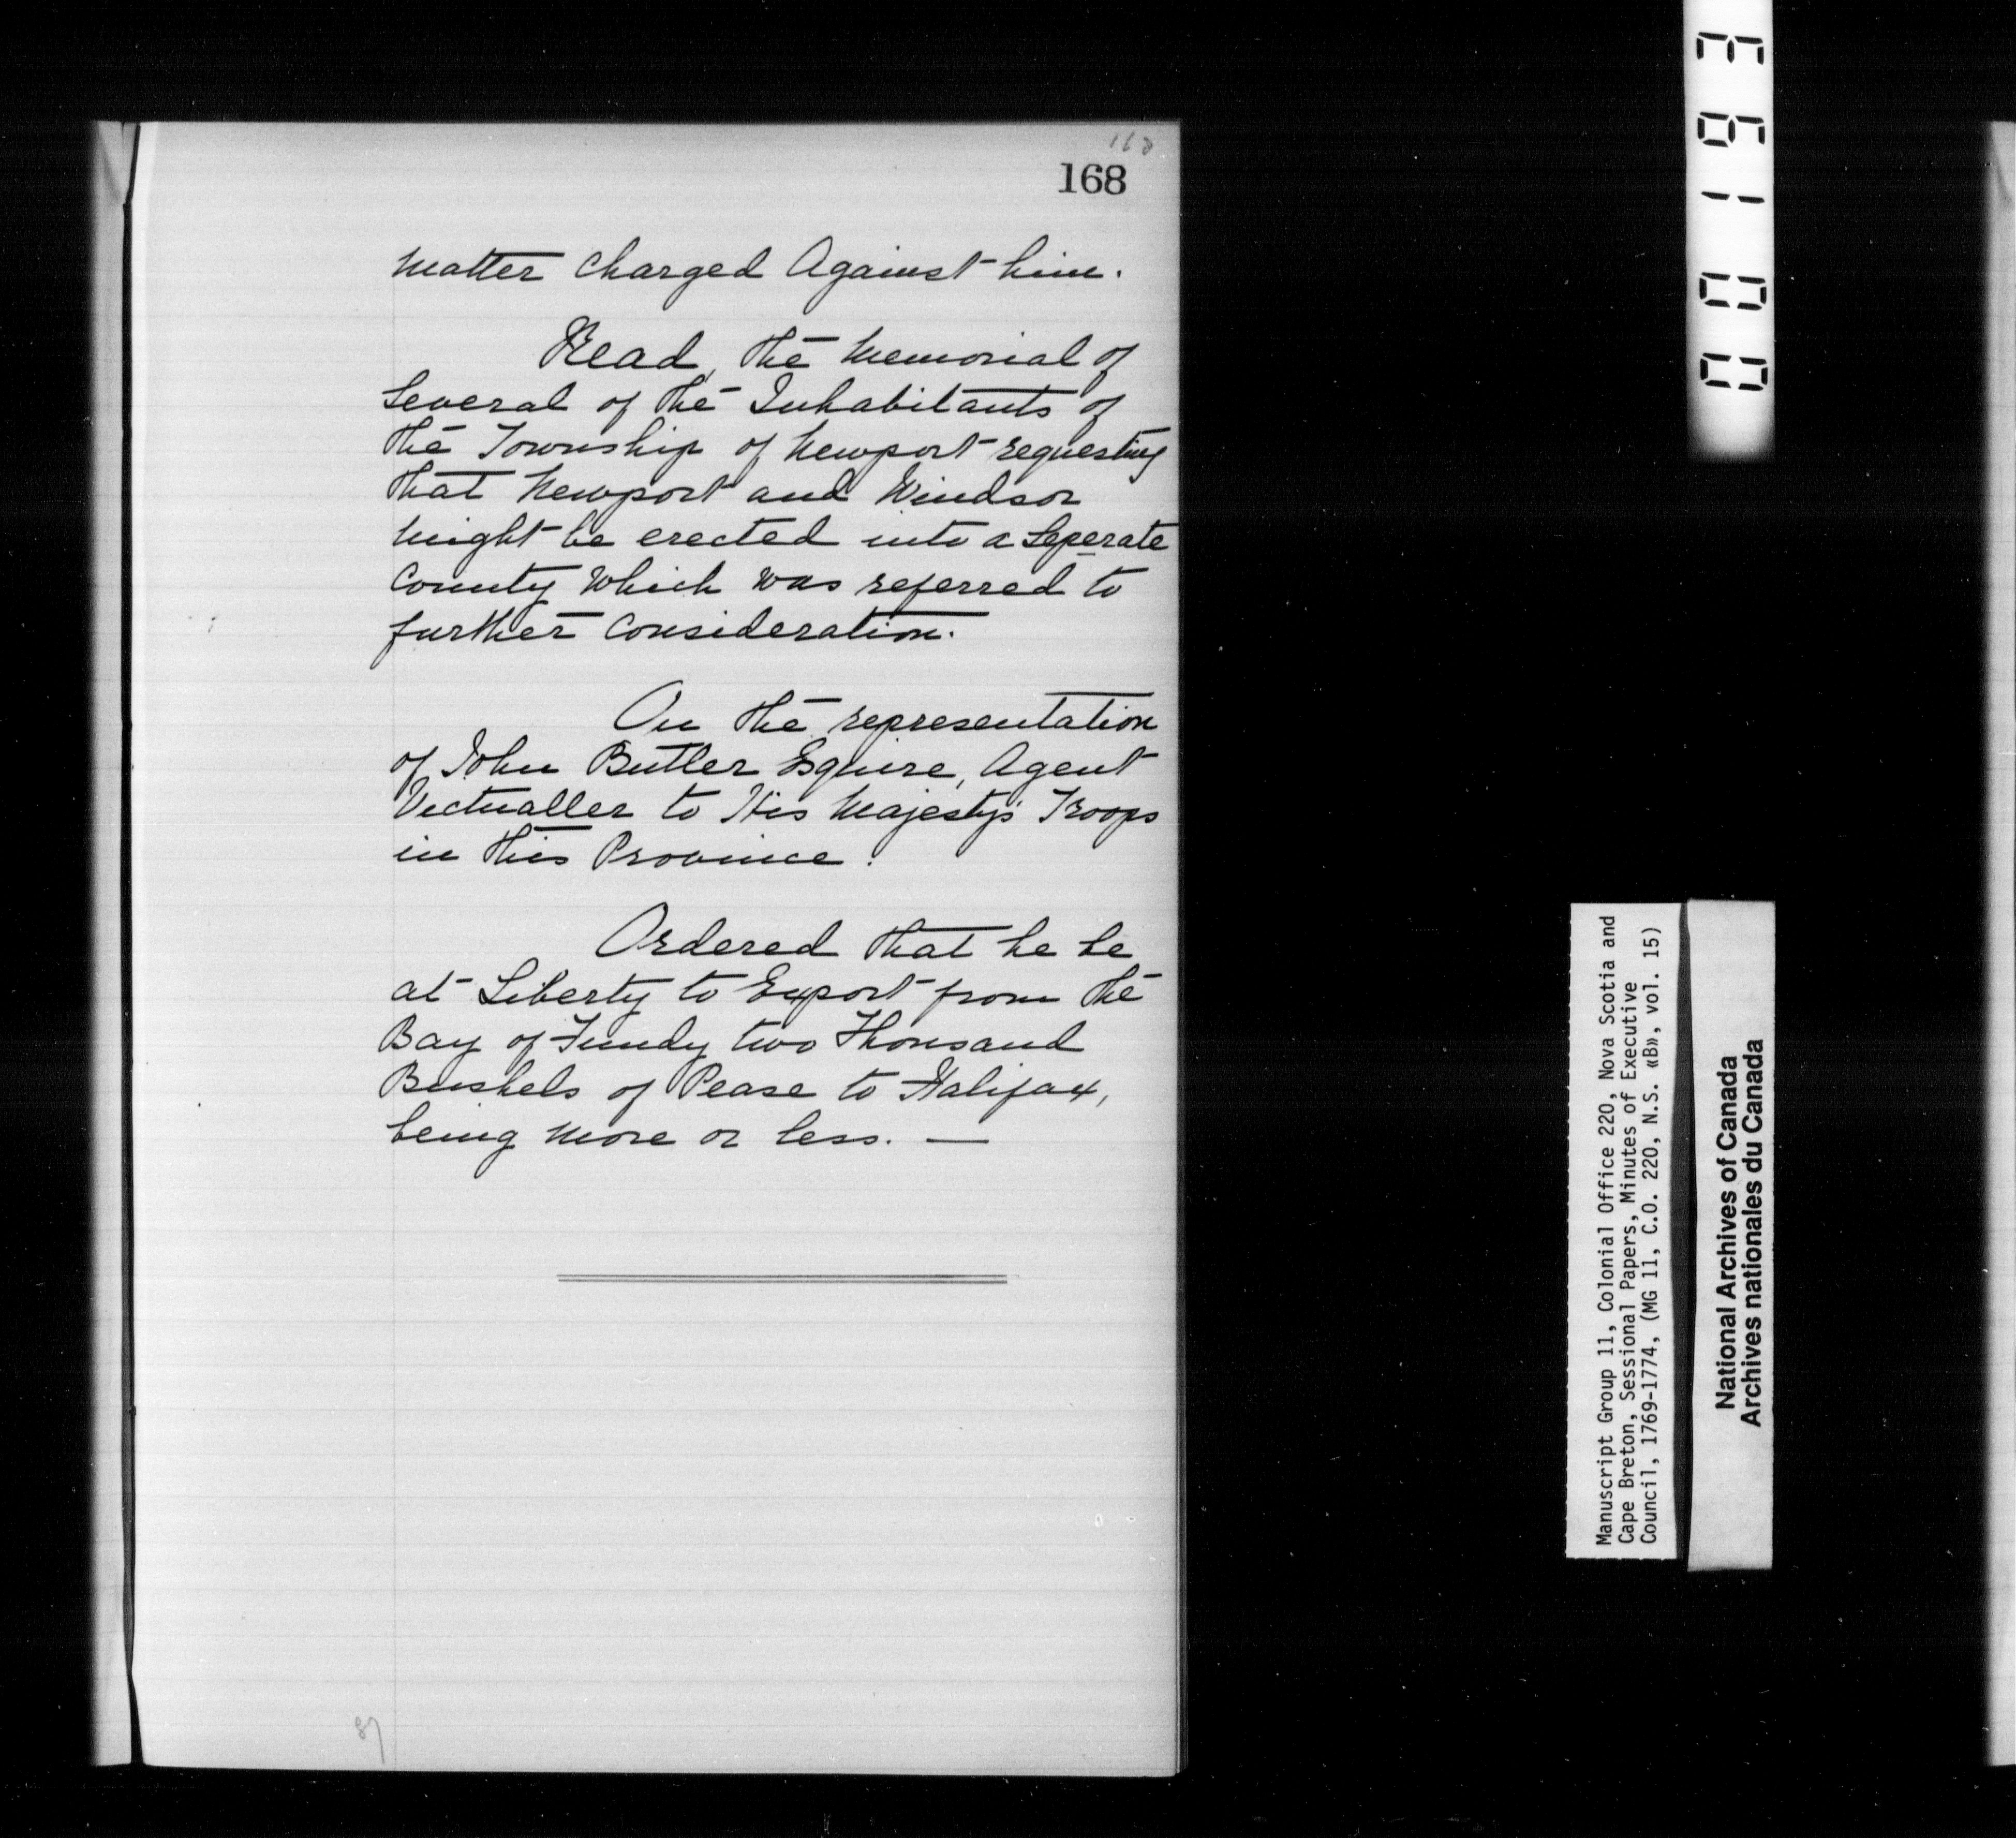 168
168
matter charged Against him.
Read, the Memorial of
Several of the Inhabitants of
the Township of Newport requesting
that Newport and Windsor
might be erected into a Seperate
County Which was referred to
further Consideration.
On the representation
of John Butler Esquire, Agent
Victualler to His Majesty's Troops
in this Province.
Ordered that he be
at Liberty to Export from the
Bay of Fundy two Thousand
Bushels of Pease to Halifax,
being more or less. —
87
00193
Manuscript Group 11, Colonial Office 220, Nova Scotia and
Cape Breton, Sessional Papers, Minutes of Executive
Council, 1769-1774, (MG 11, C.O. 220, N.S. «B», vol. 15)
National Archives of Canada
Archives nationales du Canada